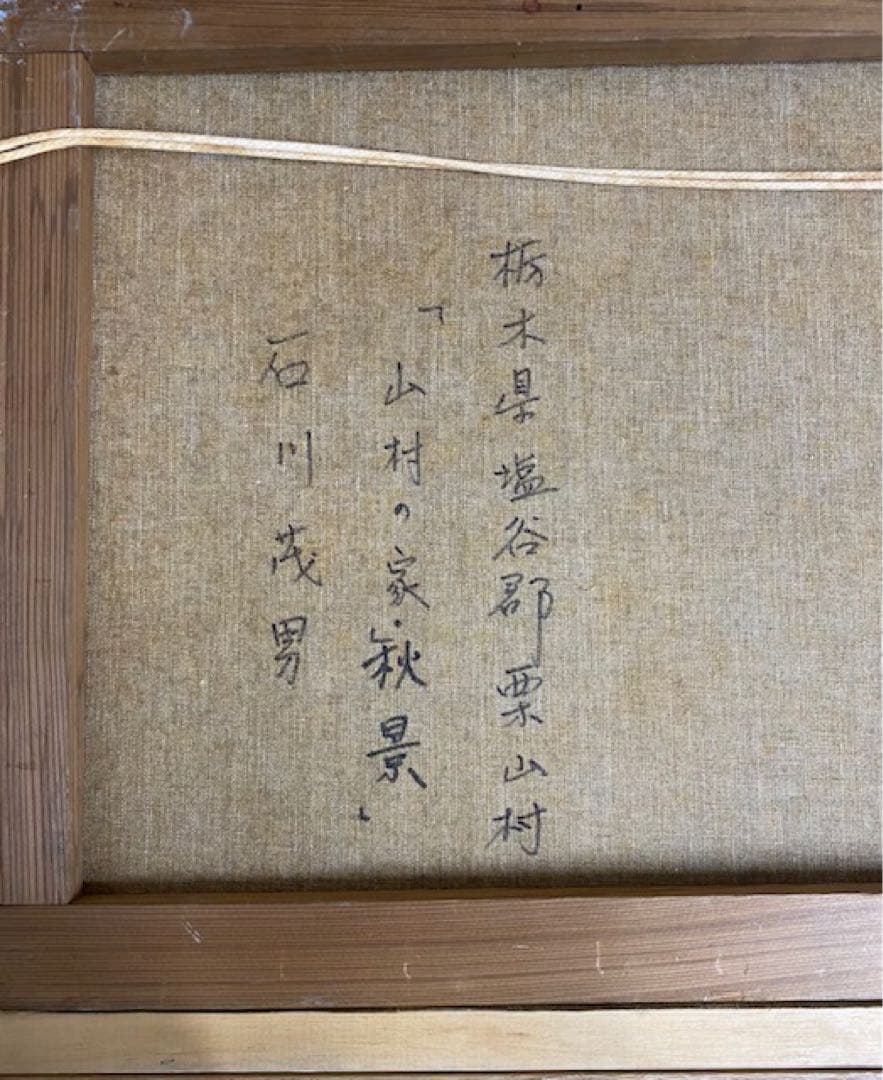 栃木県塩谷郡栗山村
「山村の家・秋景」
石川茂男